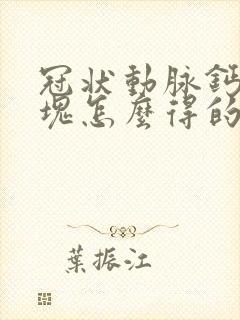 冠状動脉鈣
塊怎麼得的
葉振江